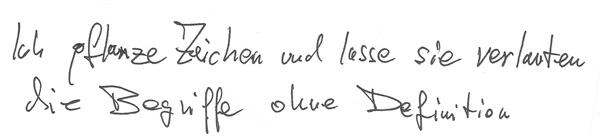 Ich pflanze Zeichen und lasse sie verlauten
die Begriffe ohne Definition